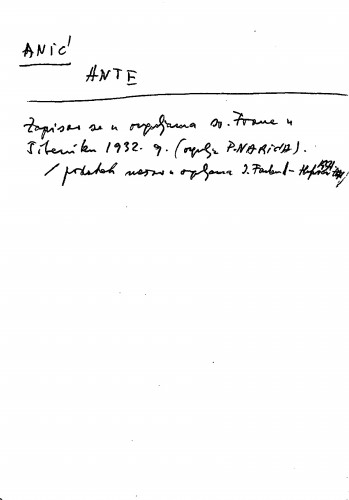 ANIĆ
ANTE
Zapisao se u orguljama sv. Frane u
Šibeniku 1932. g. (orgulje P. NARIĆA).
/ podatak orguljama J. Faulend-